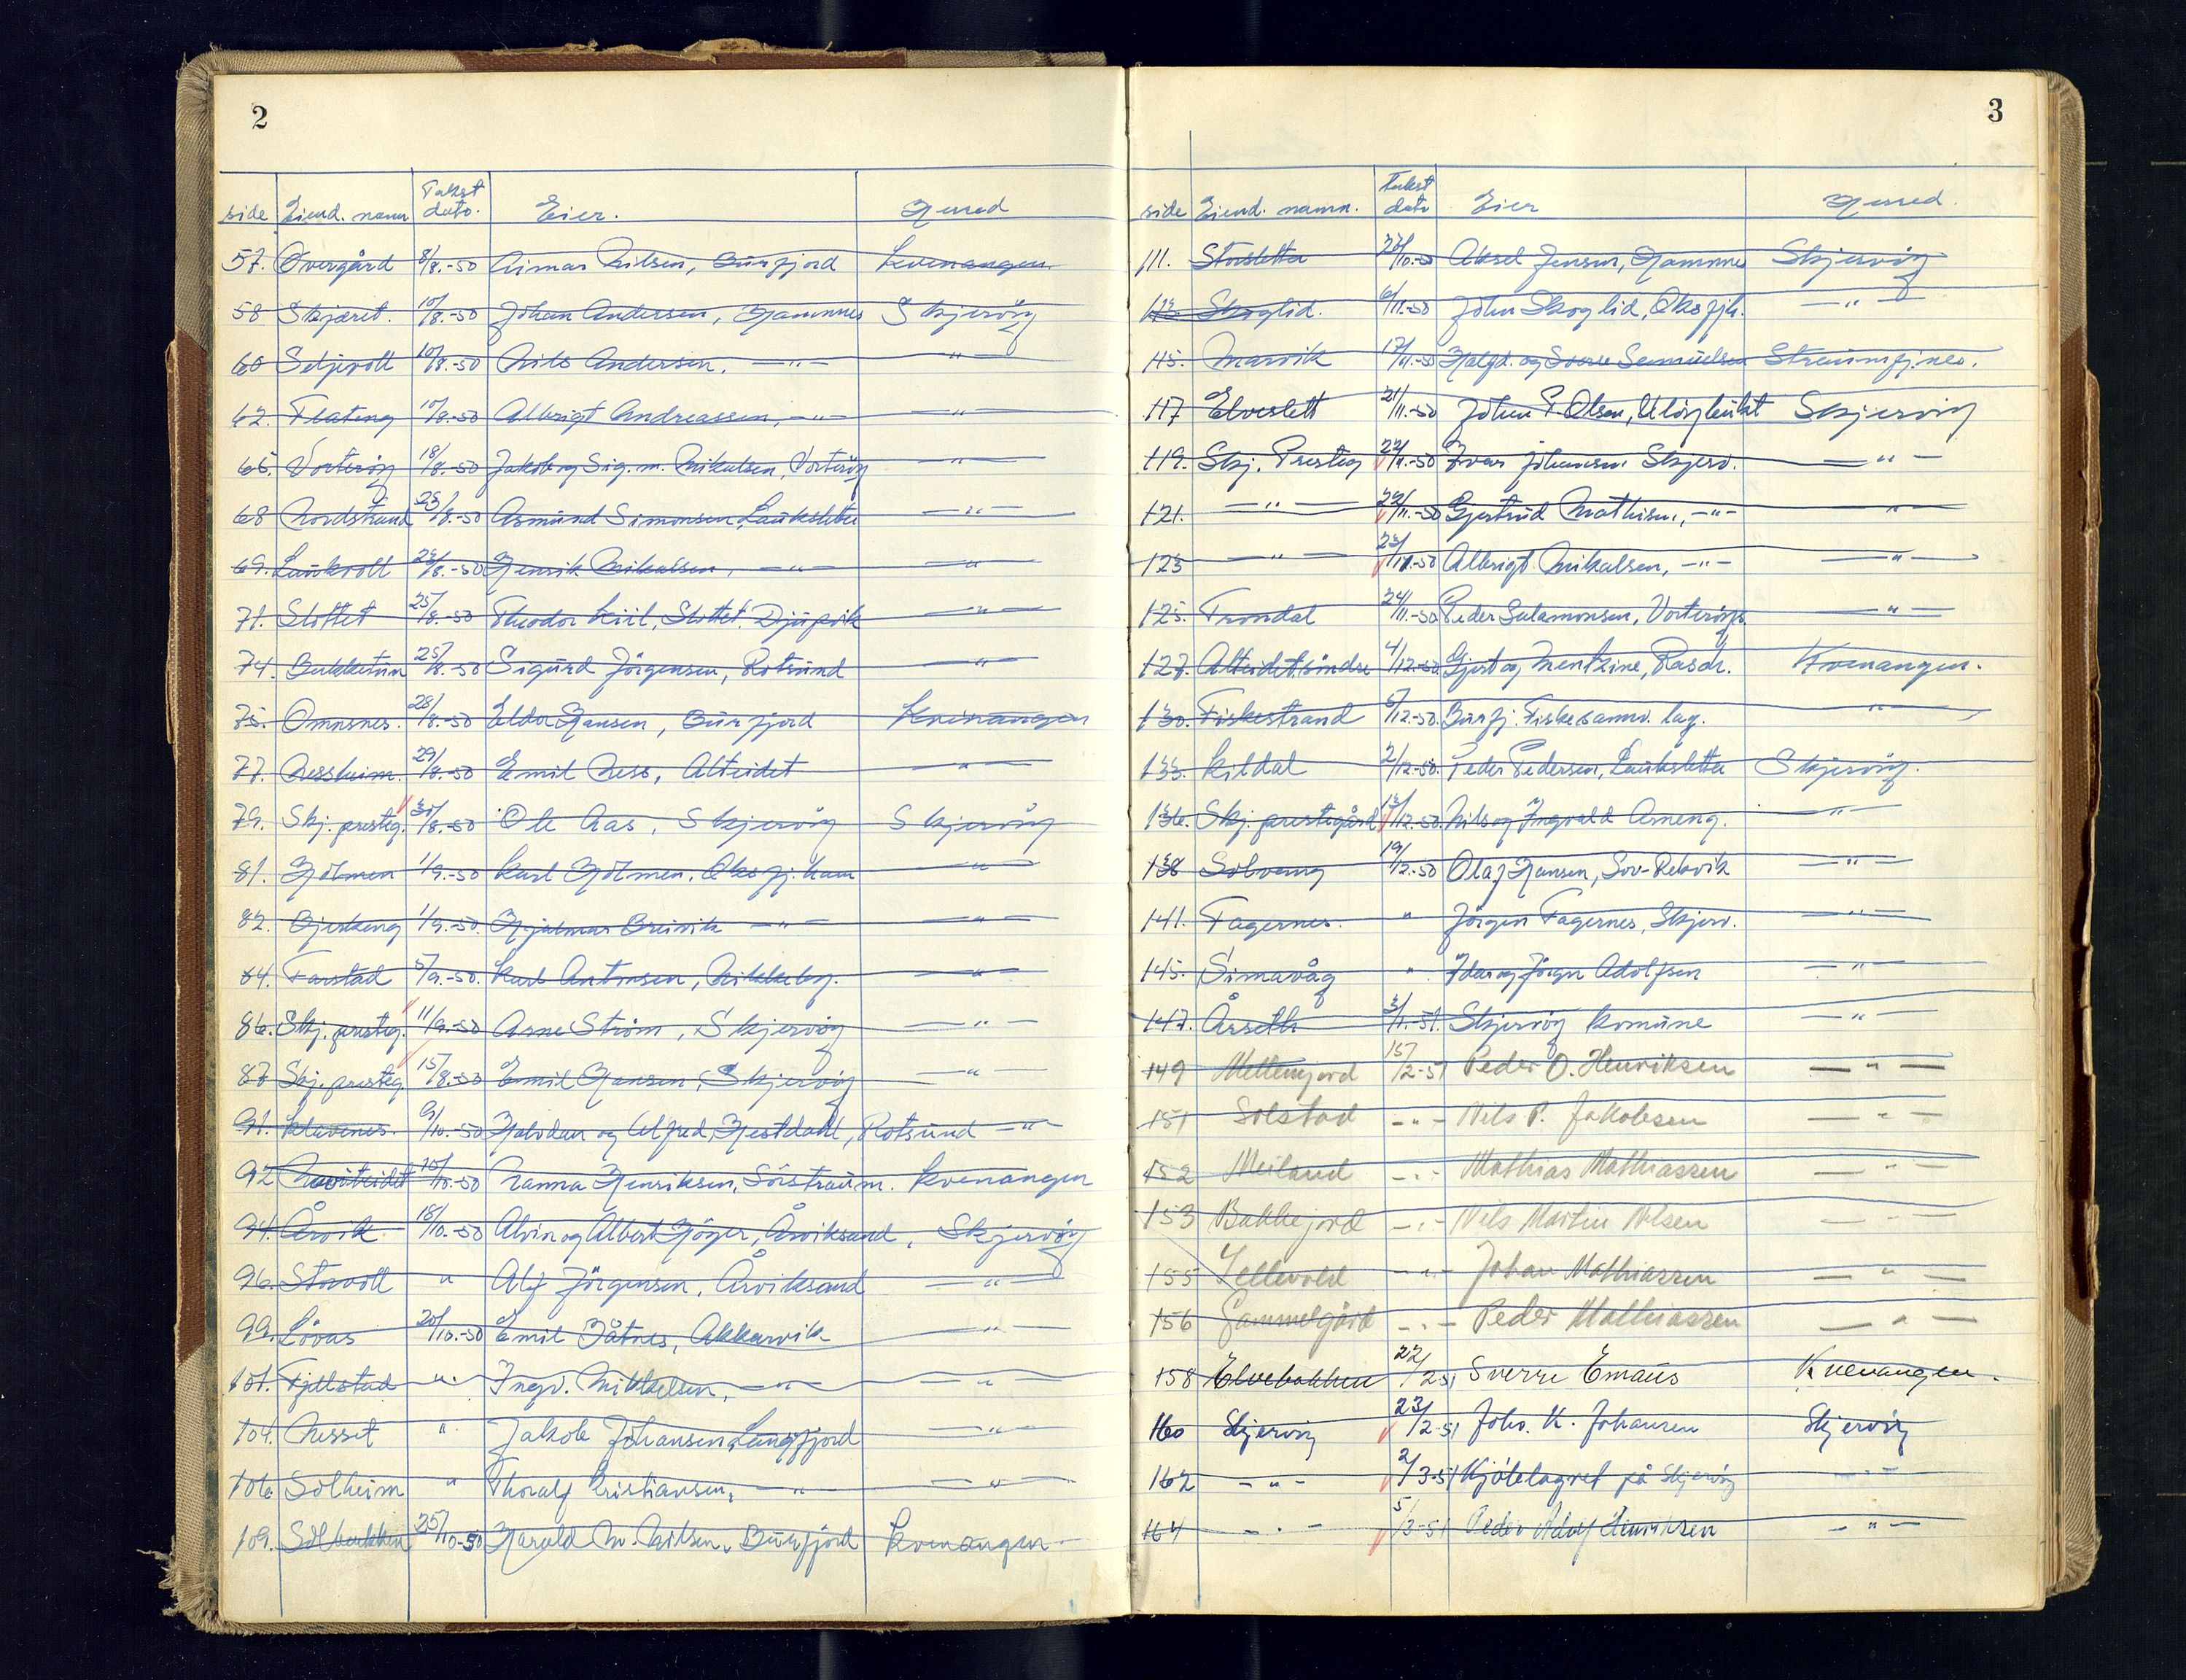 2
side Eiend. namn Takst dato. Eier. Herred
57. Övergård 8/8.-50 Aimar Nilsen, Burfjord Kvenangen
58 Skjæret. 10/8.-50 Johan Andersen, Hamnnes Skjervöy
60 Seljevoll 10/8.-50 Nils Andersen, —"— —"—
62. Flateng 10/8.-50 Albrigt Andreassen, —"— —"—
65. Vorteröy 18/8.-50 Jakob og Sig. m. Mikalsen, Vorteröy —"—
68 Nordstrand 23/8.-50 Asmund Simonsen, Laukslettu —"—
69. Laukvoll 23/8.-50 Henrik Mikalsen, —"— —"—
71. Slottet 25/8.-50 Theodor Kiil, Slottet, Djupvik —"—
74. Bakketun 25/8.-50 Sigurd Jörgensen, Rotsund —"—
75. Omnsnes. 28/8.-50 Eldor Hansen, Burfjord Kvenangen
77. Nessheim. 29/8.-50 Emil Ness, Alteidet —"—
79. Skj. presteg. 30/8.-50 Ole Aas, Skjervöy Skjervöy
81. Holmen 1/9.-50 Karl Holmen, Oksfj. ham —"—
82. Bjerkeng 1/9.-50 Hjalmar Breivik —"— —"—
84. Farstad 5/9.-50. Karl Antonsen, Nikkeby. —"—
86. Skj. presteg. 11/9.-50 Arne Ström, Skjervöy —"—
87 Skj. presteg. 15/8.-50 Emil Hansen, Skjervöy —"—
91. Klauvnes. 9/10.-50 Halvdan og Alfred Hestdahl, Rotsund —"—
92 Naviteidet 10/10.-50 Nanna Henriksen, Sörstraum. Kvenangen
94. Årvik 18/10.-50 Alvin og Albert Höyer, Årviksand, Skjervöy
96. Storvoll " Alf Jörgensen, Årviksand —"—
99. Lövås 20/10.-50 Emil Båtnes, Akkarvik —"—
101. Fjellstad " Ingv. Mikkelsen, —"— —"—
104. Nesset " Jakob Johansen, Langfjord —"—
106 Solheim " Thoralf Kristiansen, —"— —"—
109. Solbakken 25/10-50 Harald M. Nilsen, Burfjord Kvenangen
3
side Eiend. namn. Takst dato Eier Herred.
111. Storsletta 27/10.-50 Aksel Jensen, Hamnnes Skjervöy
113 Skoglid. 6/11.-50 John Skoglid, Oksfjh. —"—
115. Marvik 17/11.-50 Halfd. og Sverre Samuelsen Straumfjnes.
117 Elveslett 21/11.-50 Johan P. Olsen, Ulöybukt Skjervöy
119. Skj. Presteg 22/11.-50 Ivar Johansen Skjerv. —"—
121. —"— 22/11.-50 Gjertrud Mathisen, —"— —"—
123 —"— 23/11.-50 Albrigt Mikalsen, —"— —"—
125. Trondal 24/11.-50 Peder Salamonsen, Vorteröy. —"—
127. Alteidet söndre 4/12.-50 Gjert og Mentzine, Rasch. Kvenangen.
130. Fiskestrand 5/12.-50. Burfj. Fiskesamv. lag. —"—
133. Kildal 2/12.-50. Peder Pedersen, Laukslettu Skjervöy.
136. Skj. prestegård 13/12.-50. Nils og Ingvald Arneng. —"—
138 Solvang 19/12.-50 Olaf Hansen, Sov-Rekvik —"—
141. Fagernes. " Jörgen Fagernes, Skjerv. —"—
145. Simavåg " Idar og Jörgen Adolfsen —"—
147. Årseth 3/1.-51. Skjervöy Komune —"—
149 Mellemjord 15/2-51 Peder O. Henriksen —"—
151 Solstad -"- Nils P. Jakobsen —"—
152 Meiland -"- Mathias Mathiassen —"—
153 Bakkejord -"- Nils Martin Nilsen —"—
155 -"- Johan Mathiassen —"—
156 Gammelgård -"- Peder Mathiassen —"—
158 Elvebakken 22/2 51 Sverre Emaus Kvenangen.
160 Skjervöy 23/2-51 Johs. K. Johansen Skjervöy
162 -"- 2/3-51 Kjölelagret på Skjervöy -"-
164 -"- 5/3-51 Peder Adolf Henriksen -"-